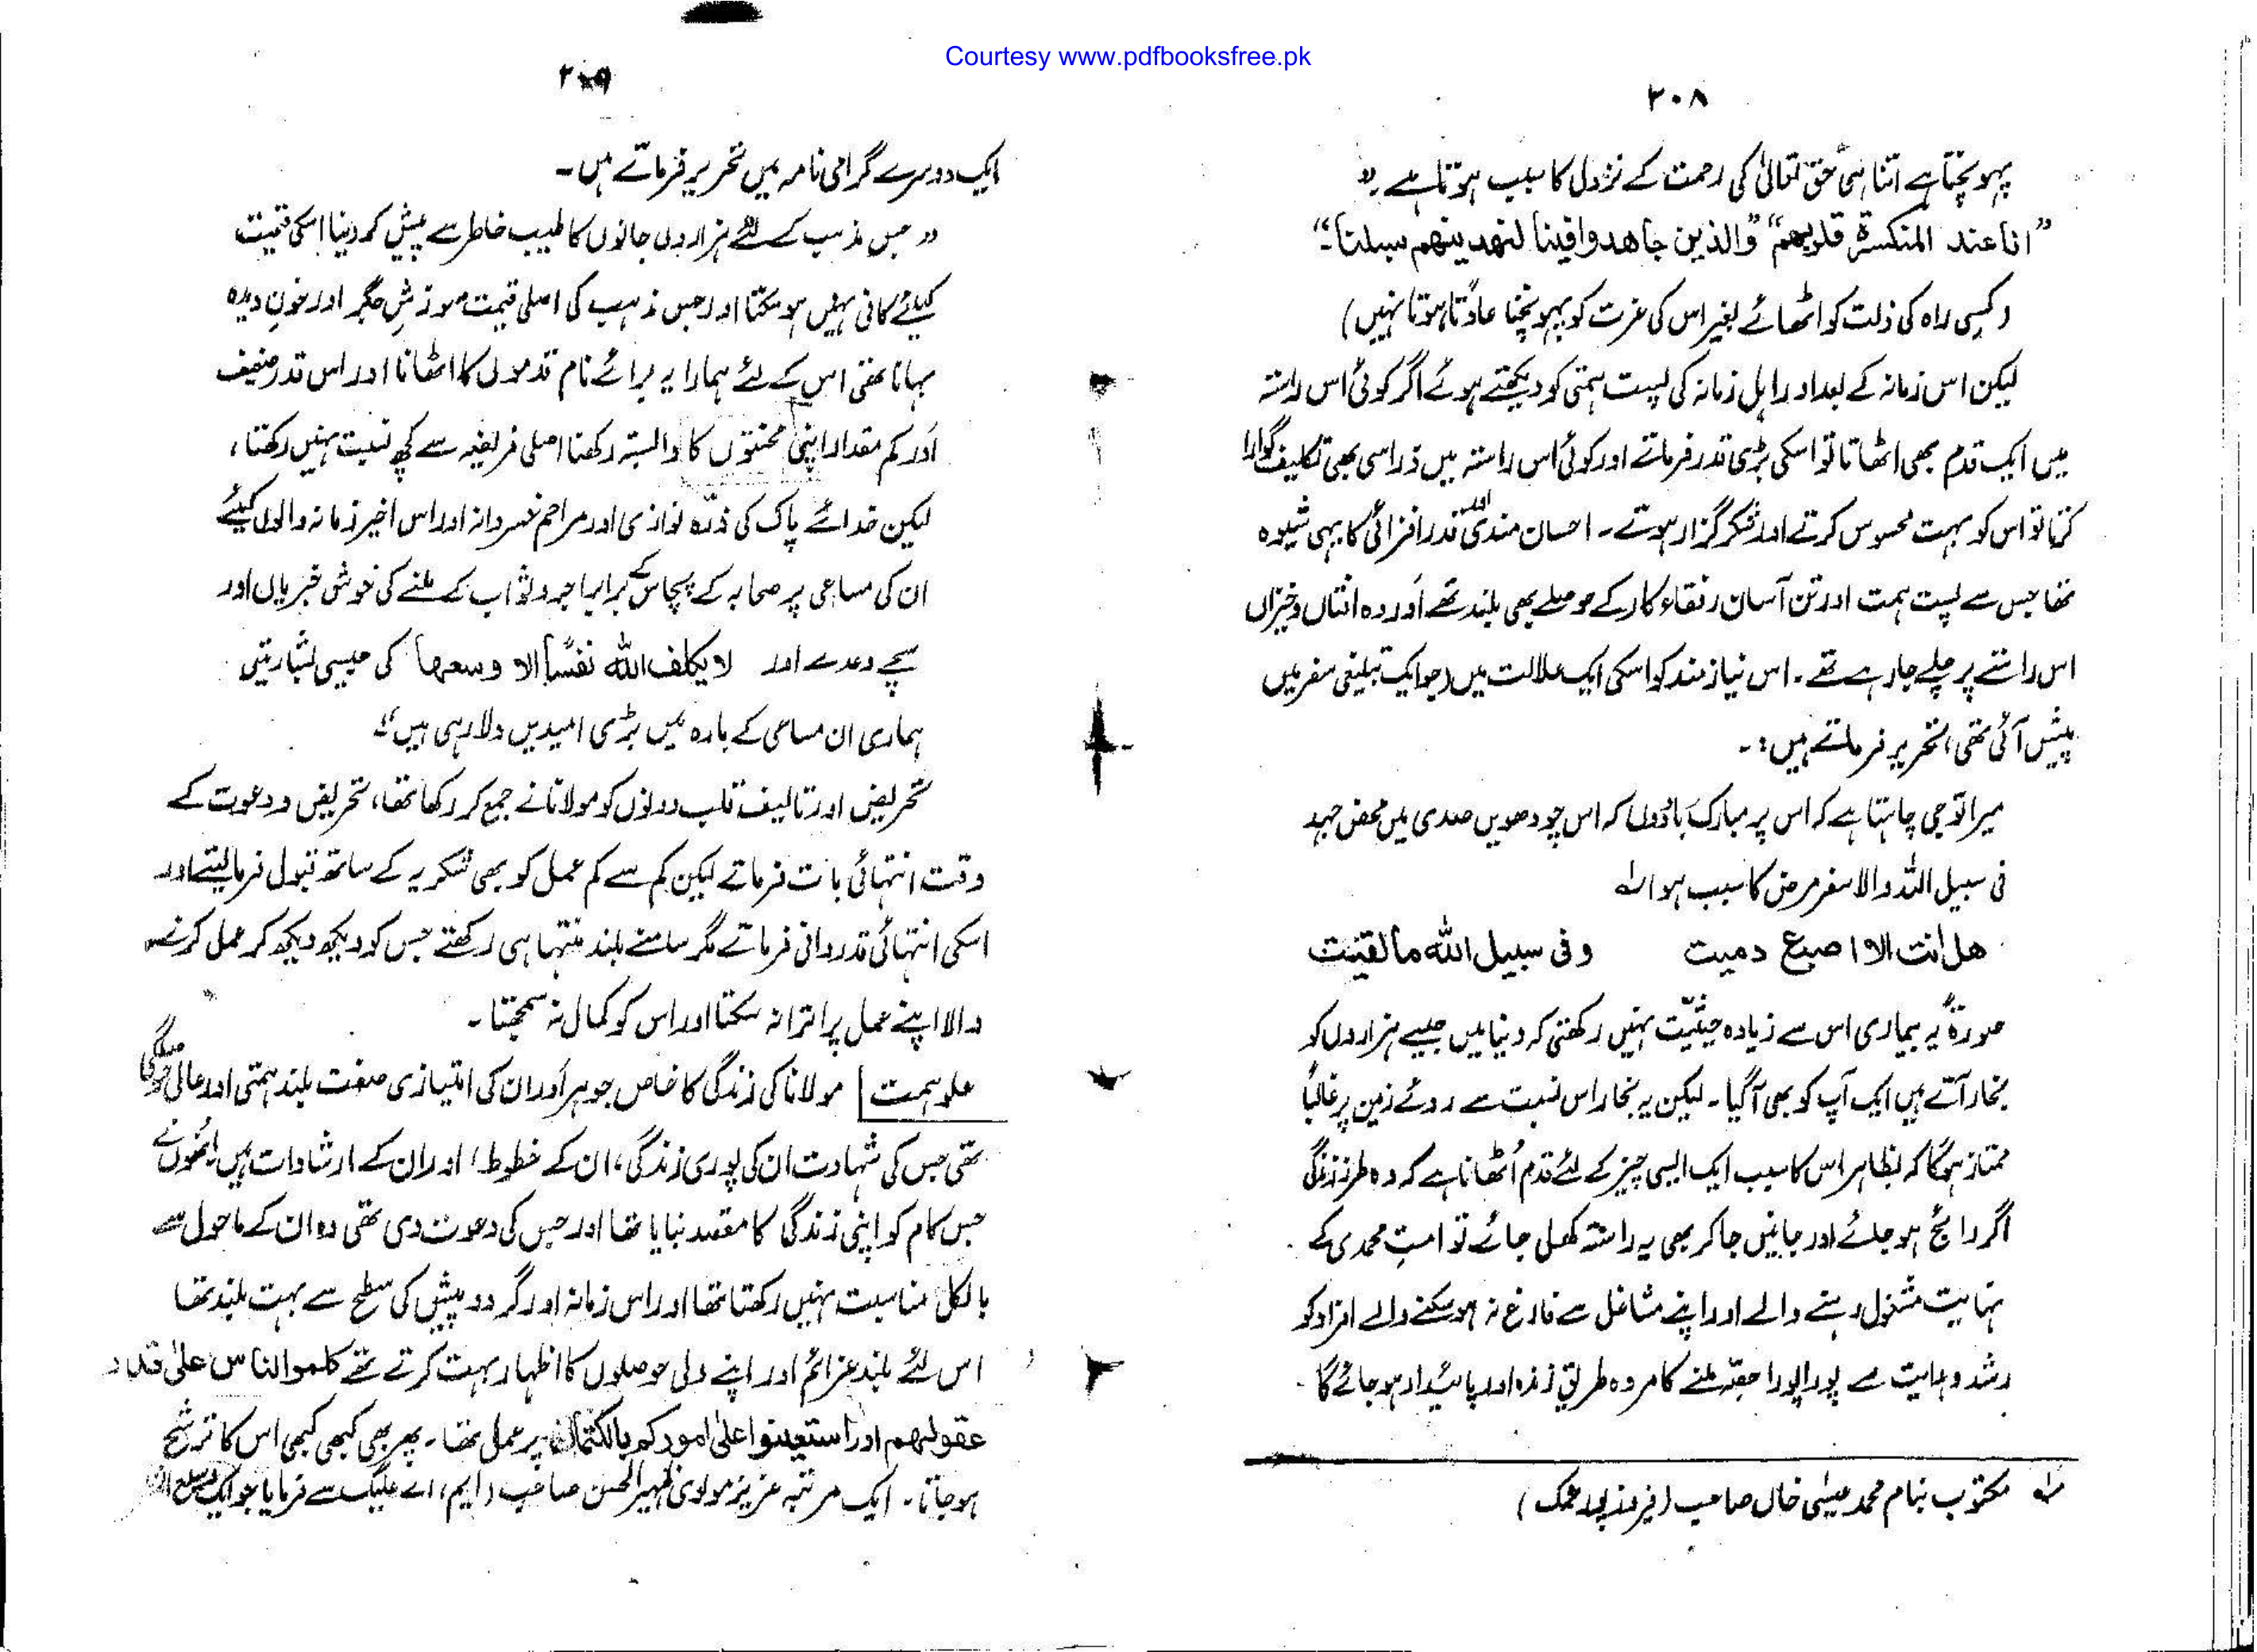 Courtesy www.pdfbooksfree.pk
۲۰۸
پہونچتا ہے اتنا ہی حق تعالیٰ کی رحمت کے نزول کا سبب ہوتا ہے
”انا عند المنکسرۃ قلوبھم“ ”والذین جاھدوا فینا لنھدینھم سبلنا۔“
(کسی راہ کی ذلت کو اٹھائے بغیر اس کی عزت کو پہونچنا عادتًا ہوتا نہیں)
لیکن اس زمانہ کے بعد اور اہل زمانہ کی پست ہمتی کو دیکھتے ہوئے اگر کوئی اس راستہ
میں ایک قدم بھی اٹھاتا تو اسکی بڑی قدر فرماتے اور کوئی اس راستہ میں ذراسی بھی تکلیف گوارا
کرتا تو اس کو بہت محسوس کرتے اور شکر گزار ہوتے۔ احسان مندی اور قدر افزائی کا یہی شیوہ
تھا جس سے پست ہمت اور تن آسان رفقاء کار کے حوصلے بھی بلند تھے اور وہ افتاں وخیزاں
اس راستے پر چلے جارہے تھے۔ اس نیازمند کو اسکی ایک علالت میں (جو ایک تبلیغی سفر میں
پیش آئی تھی) تحریر فرماتے ہیں:۔
میرا تو جی چاہتا ہے کہ اس پر مبارکباد دوں کہ اس چودھویں صدی میں محض جہد
فی سبیل اللہ والا سفر مرض کا سبب ہوا
ھل انت الا اصبع دمیت وفی سبیل اللہ ما لقیت
صورۃً یہ بیماری اس سے زیادہ حیثیت نہیں رکھتی کہ دنیا میں جیسے ہزاروں کو
بخار آتے ہیں ایک آپ کو بھی آگیا۔ لیکن یہ بخار اس نسبت سے روئے زمین پر غالبًا
ممتاز ہوگا کہ بظاہر اس کا سبب ایک ایسی چیز کے لئے قدم اُٹھانا ہے کہ وہ طرز زندگی
اگر رائج ہوجائے اور جانیں جاکر بھی یہ راستہ کھل جائے تو امتِ محمدی کے
نہایت مشغول رہنے والے اور اپنے مشاغل سے فارغ نہ ہوسکنے والے افراد کو
رشد و ہدایت سے پورا پورا حصّہ ملنے کا مردہ طریق زندہ اور پائیدار ہوجائے گا۔
لہ مکتوب بنام محمد عیسیٰ خاں صاحب (فیروزپور نمک)
۲۰۹
ایک دوسرے گرامی نامہ میں تحریر فرماتے ہیں۔
”جس مذہب کے لئے ہزاروں جانوں کا طیب خاطر سے پیش کردینا اسکی قیمت
کیلئے کافی نہیں ہوسکتا اور جس مذہب کی اصلی قیمت سوزشِ جگر اور خونِ دیدہ
بہانا تھی اس کے لئے ہمارا یہ برائے نام قدموں کا اٹھانا اور اس قدر ضعیف
اور کم مقدار اپنی محنتوں کا وابستہ رکھنا اصلی فریضہ سے کچھ نسبت نہیں رکھتا،
لیکن خدائے پاک کی ذرہ نوازی اور مراحم خسروانہ اور اس اخیر زمانہ والوں کیلئے
ان کی مساعی پر صحابہ کے پچاس کے برابر اجر و ثواب کے ملنے کی خوش خبریاں اور
سچے وعدے اور لا یکلف اللہ نفسًا الا وسعھا کی جیسی بشارتیں
ہماری ان مساعی کے بارہ میں بڑی امیدیں دلا رہی ہیں“
تحریض اور تالیف قلب دونوں کو مولانا نے جمع کر رکھا تھا، تحریض و دعوت کے
وقت انتہائی بات فرماتے لیکن کم سے کم عمل کو بھی شکریہ کے ساتھ قبول فرمالیتے اور
اسکی انتہائی قدردانی فرماتے مگر سامنے بلند منتہا ہی رکھتے جس کو دیکھ دیکھ کر عمل کرنے
والا اپنے عمل پر اترانہ سکتا اور اس کو کمال نہ سمجھتا۔
علو ہمت | مولانا کی زندگی کا خاص جوہر اور ان کی امتیازی صفت بلند ہمتی اور عالی حوصلگی
تھی جس کی شہادت ان کی پوری زندگی، ان کے خطوط، اور ان کے ارشادات ہیں انھوں نے
جس کام کو اپنی زندگی کا مقصد بنایا تھا اور جس کی دعوت دی تھی وہ ان کے ماحول سے
بالکل مناسبت نہیں رکھتا تھا اور اس زمانہ اور گردوپیش کی سطح سے بہت بلند تھا
اس لئے بلند عزائم اور اپنے دلی حوصلوں کا اظہار بہت کرتے تھے کلموا الناس علیٰ قدر
عقولہم اور استعینوا علیٰ امورکم بالکتمان پر عمل تھا۔ پھر بھی کبھی کبھی اس کا ترشح
ہوجاتا۔ ایک مرتبہ عزیز مولوی ظہیر الحسن صاحب (ایم، اے علیگ سے فرمایا جو ایک وسیع